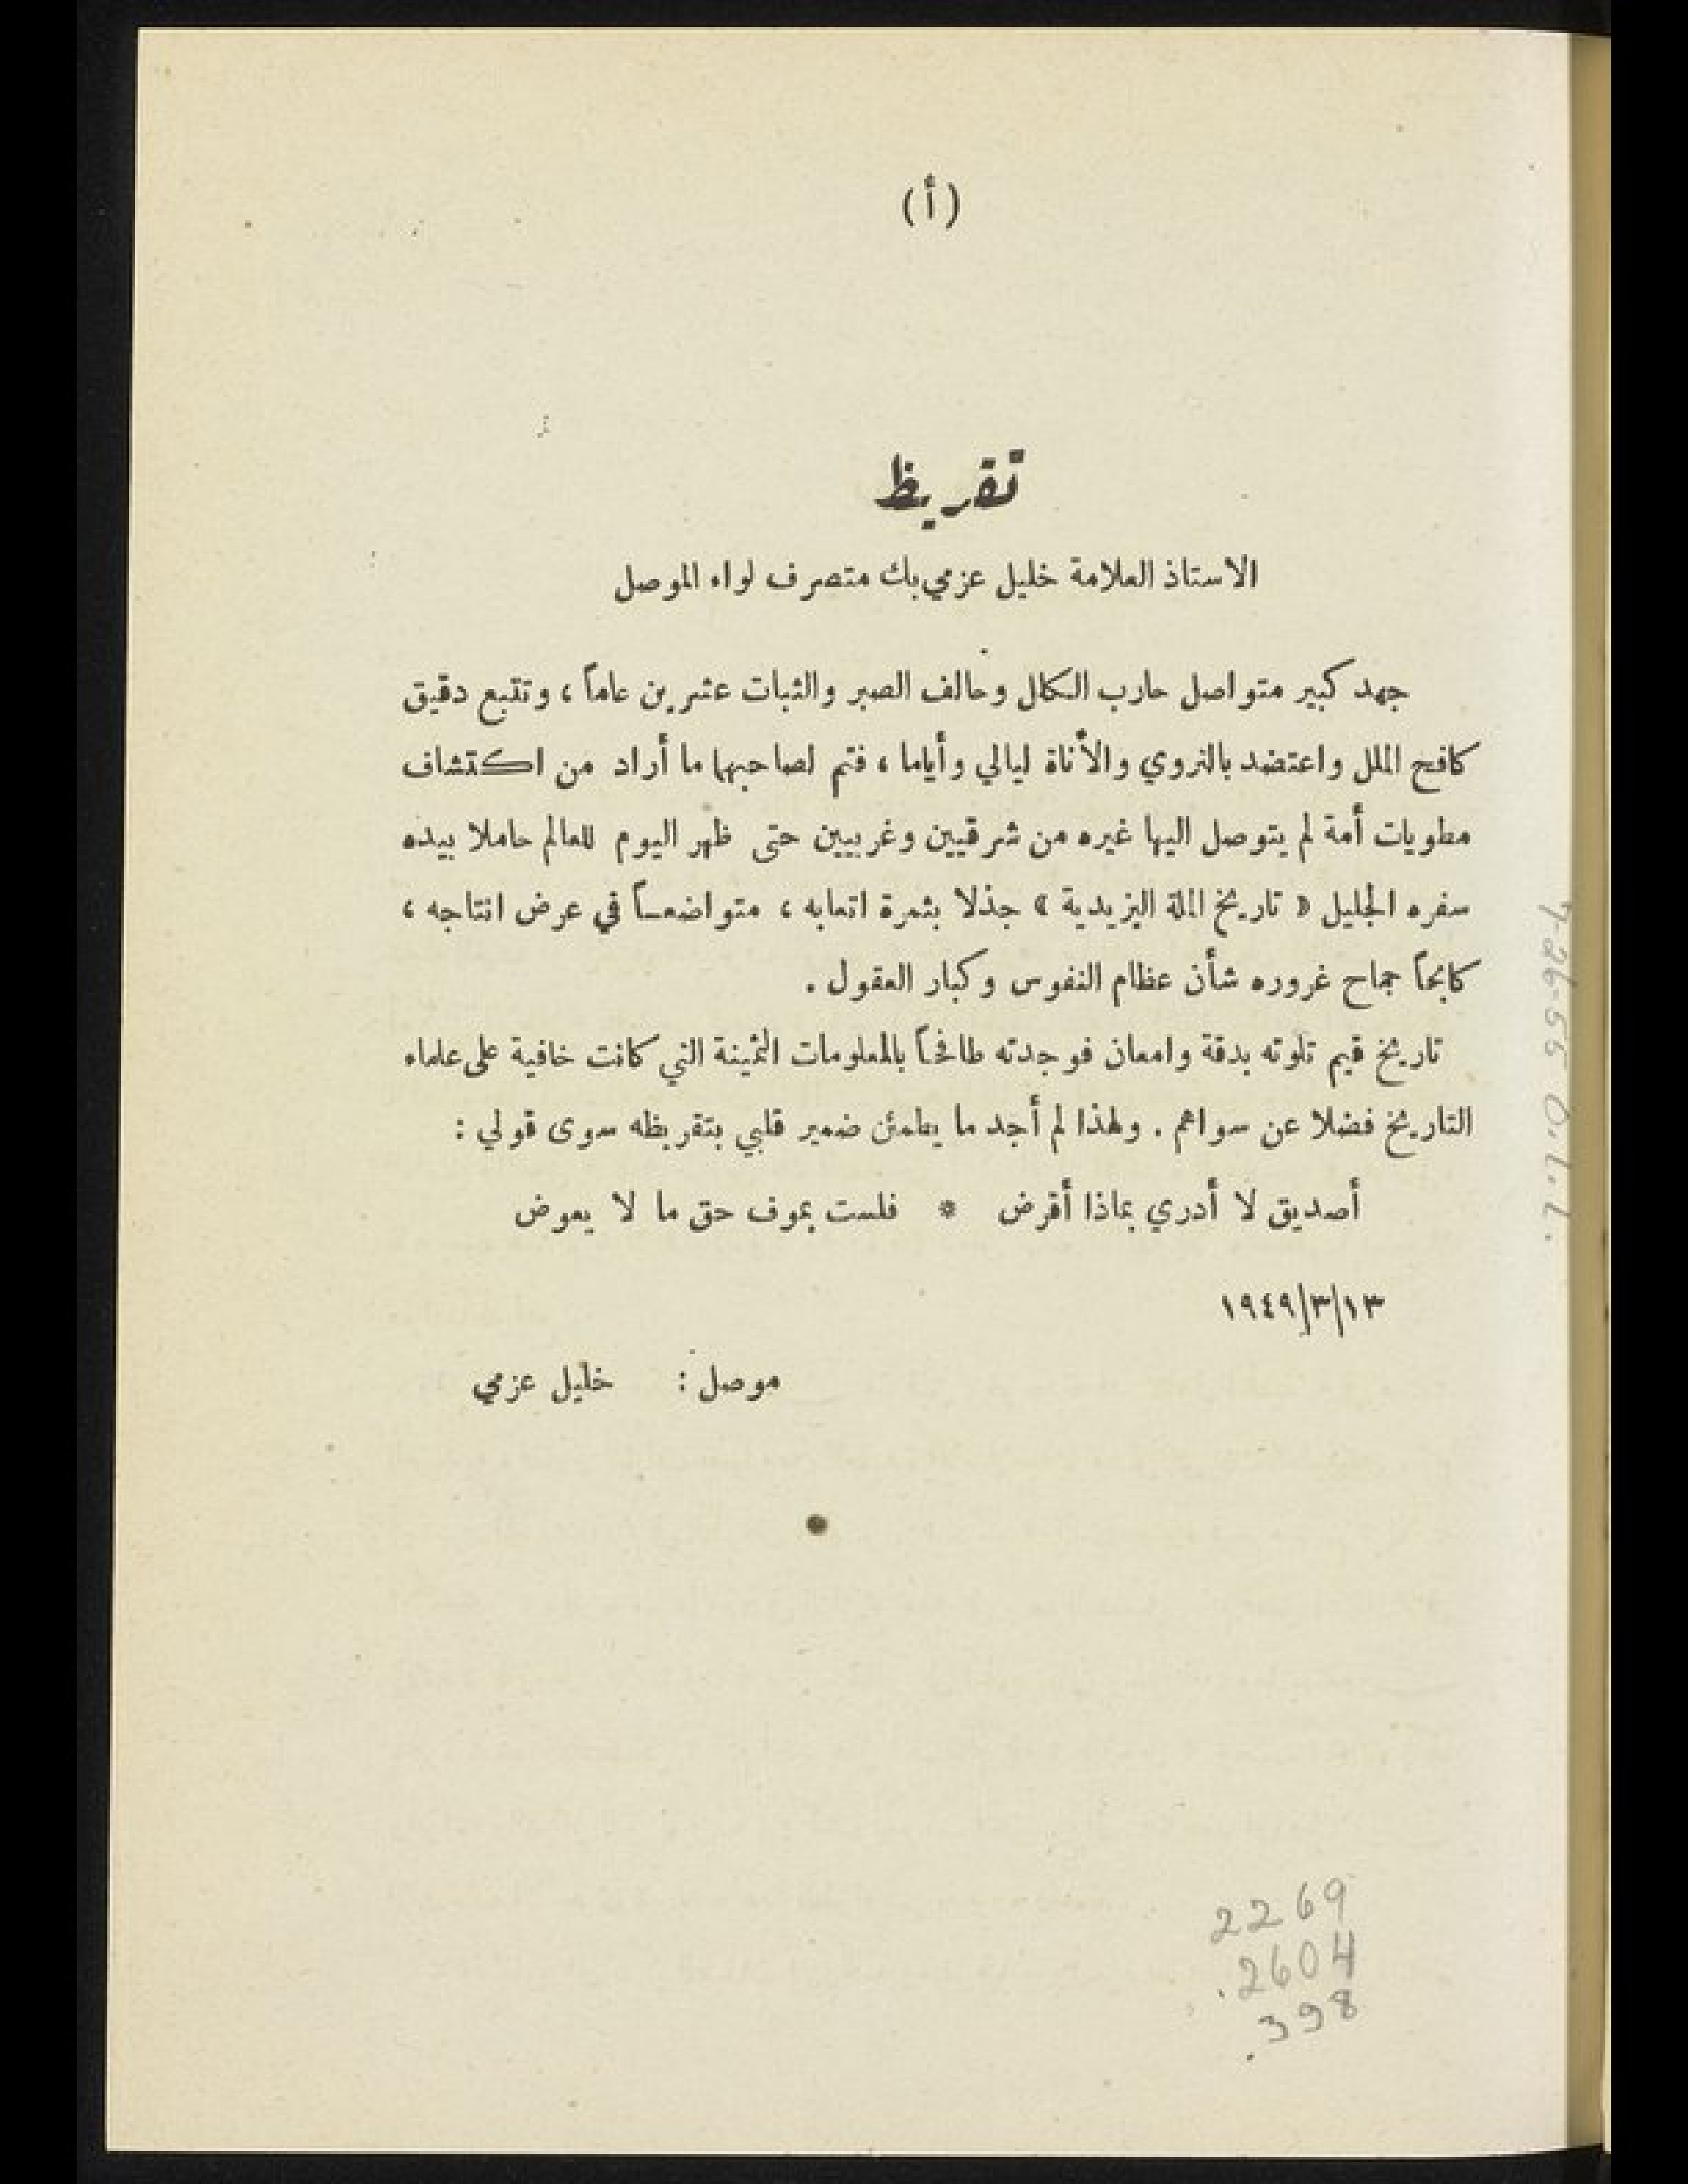 (أ)
تقريظ
الاستاذ العلامة خليل عزمي بك متصرف لواء الموصل
جهد كبير متواصل حارب الكلال وحالف الصبر والثبات عشرين عاماً ، وتتبع دقيق
كافح الملل واعتضد بالتروي والأناة ليالي وأياما ، فتم لصاحبهما ما أراد من اكتشاف
مطويات أمة لم يتوصل اليها غيره من شرقيين وغربيين حتى ظهر اليوم للعالم حاملا بيده
سفره الجليل « تاريخ الملة اليزيدية » جذلا بثمرة اتعابه ، متواضعاً في عرض انتاجه ،
كابحاً جماح غروره شأن عظام النفوس وكبار العقول .
تاريخ قيم تلوته بدقة وامعان فوجدته طافحاً بالمعلومات الثمينة التي كانت خافية على علماء
التاريخ فضلا عن سواهم . ولهذا لم أجد ما يطمئن ضمير قلبي بتقريظه سوى قولي :
أصديق لا أدري بماذا أقرض * فلست بموف حق ما لا يعوض
١٩٤٩/٣/١٣
موصل : خليل عزمي
2269
.2604
.398
7-26-55 O.L.L.